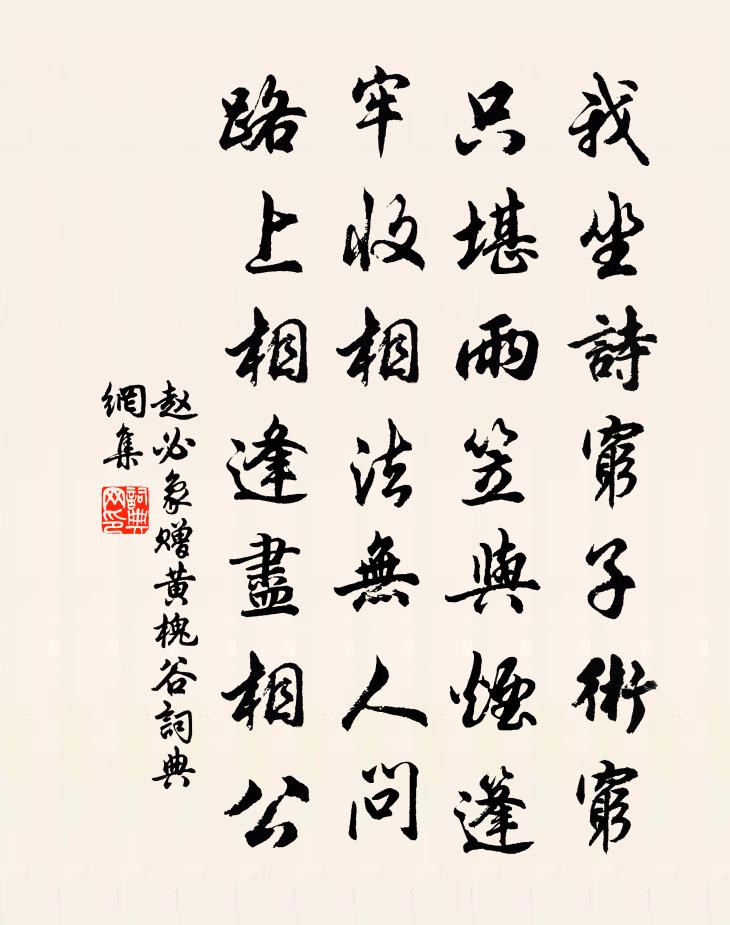 我坐詩窮子術窮
只堪雨笠與煙蓬
牢收相法無人問
路上相逢盡相公
赵必象赠黄槐谷詞典
網集
詞典
网印